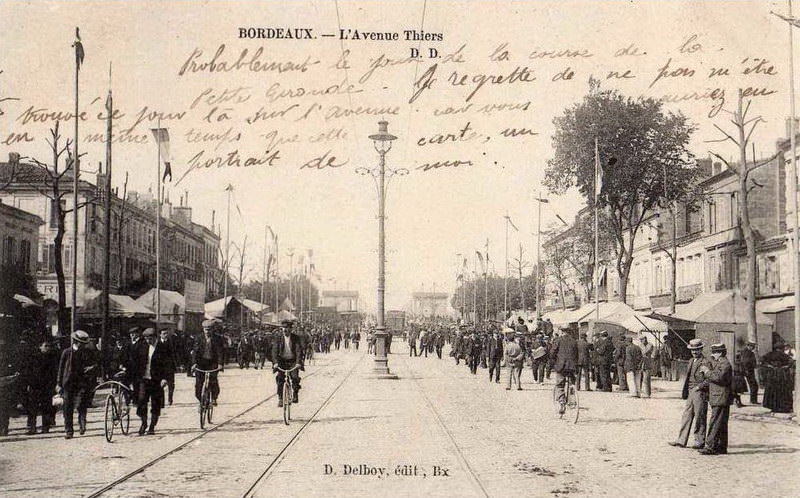 BORDEAUX. — L'Avenue Thiers
D. D.
Probablement le jour de la course de la
Petite Gironde. Je regrette de ne pas m'être
trouvée ce jour là sur l'avenue. car vous auriez eu
en même temps que cette carte, un
portrait de moi.
D. Delboy, édit, Bx